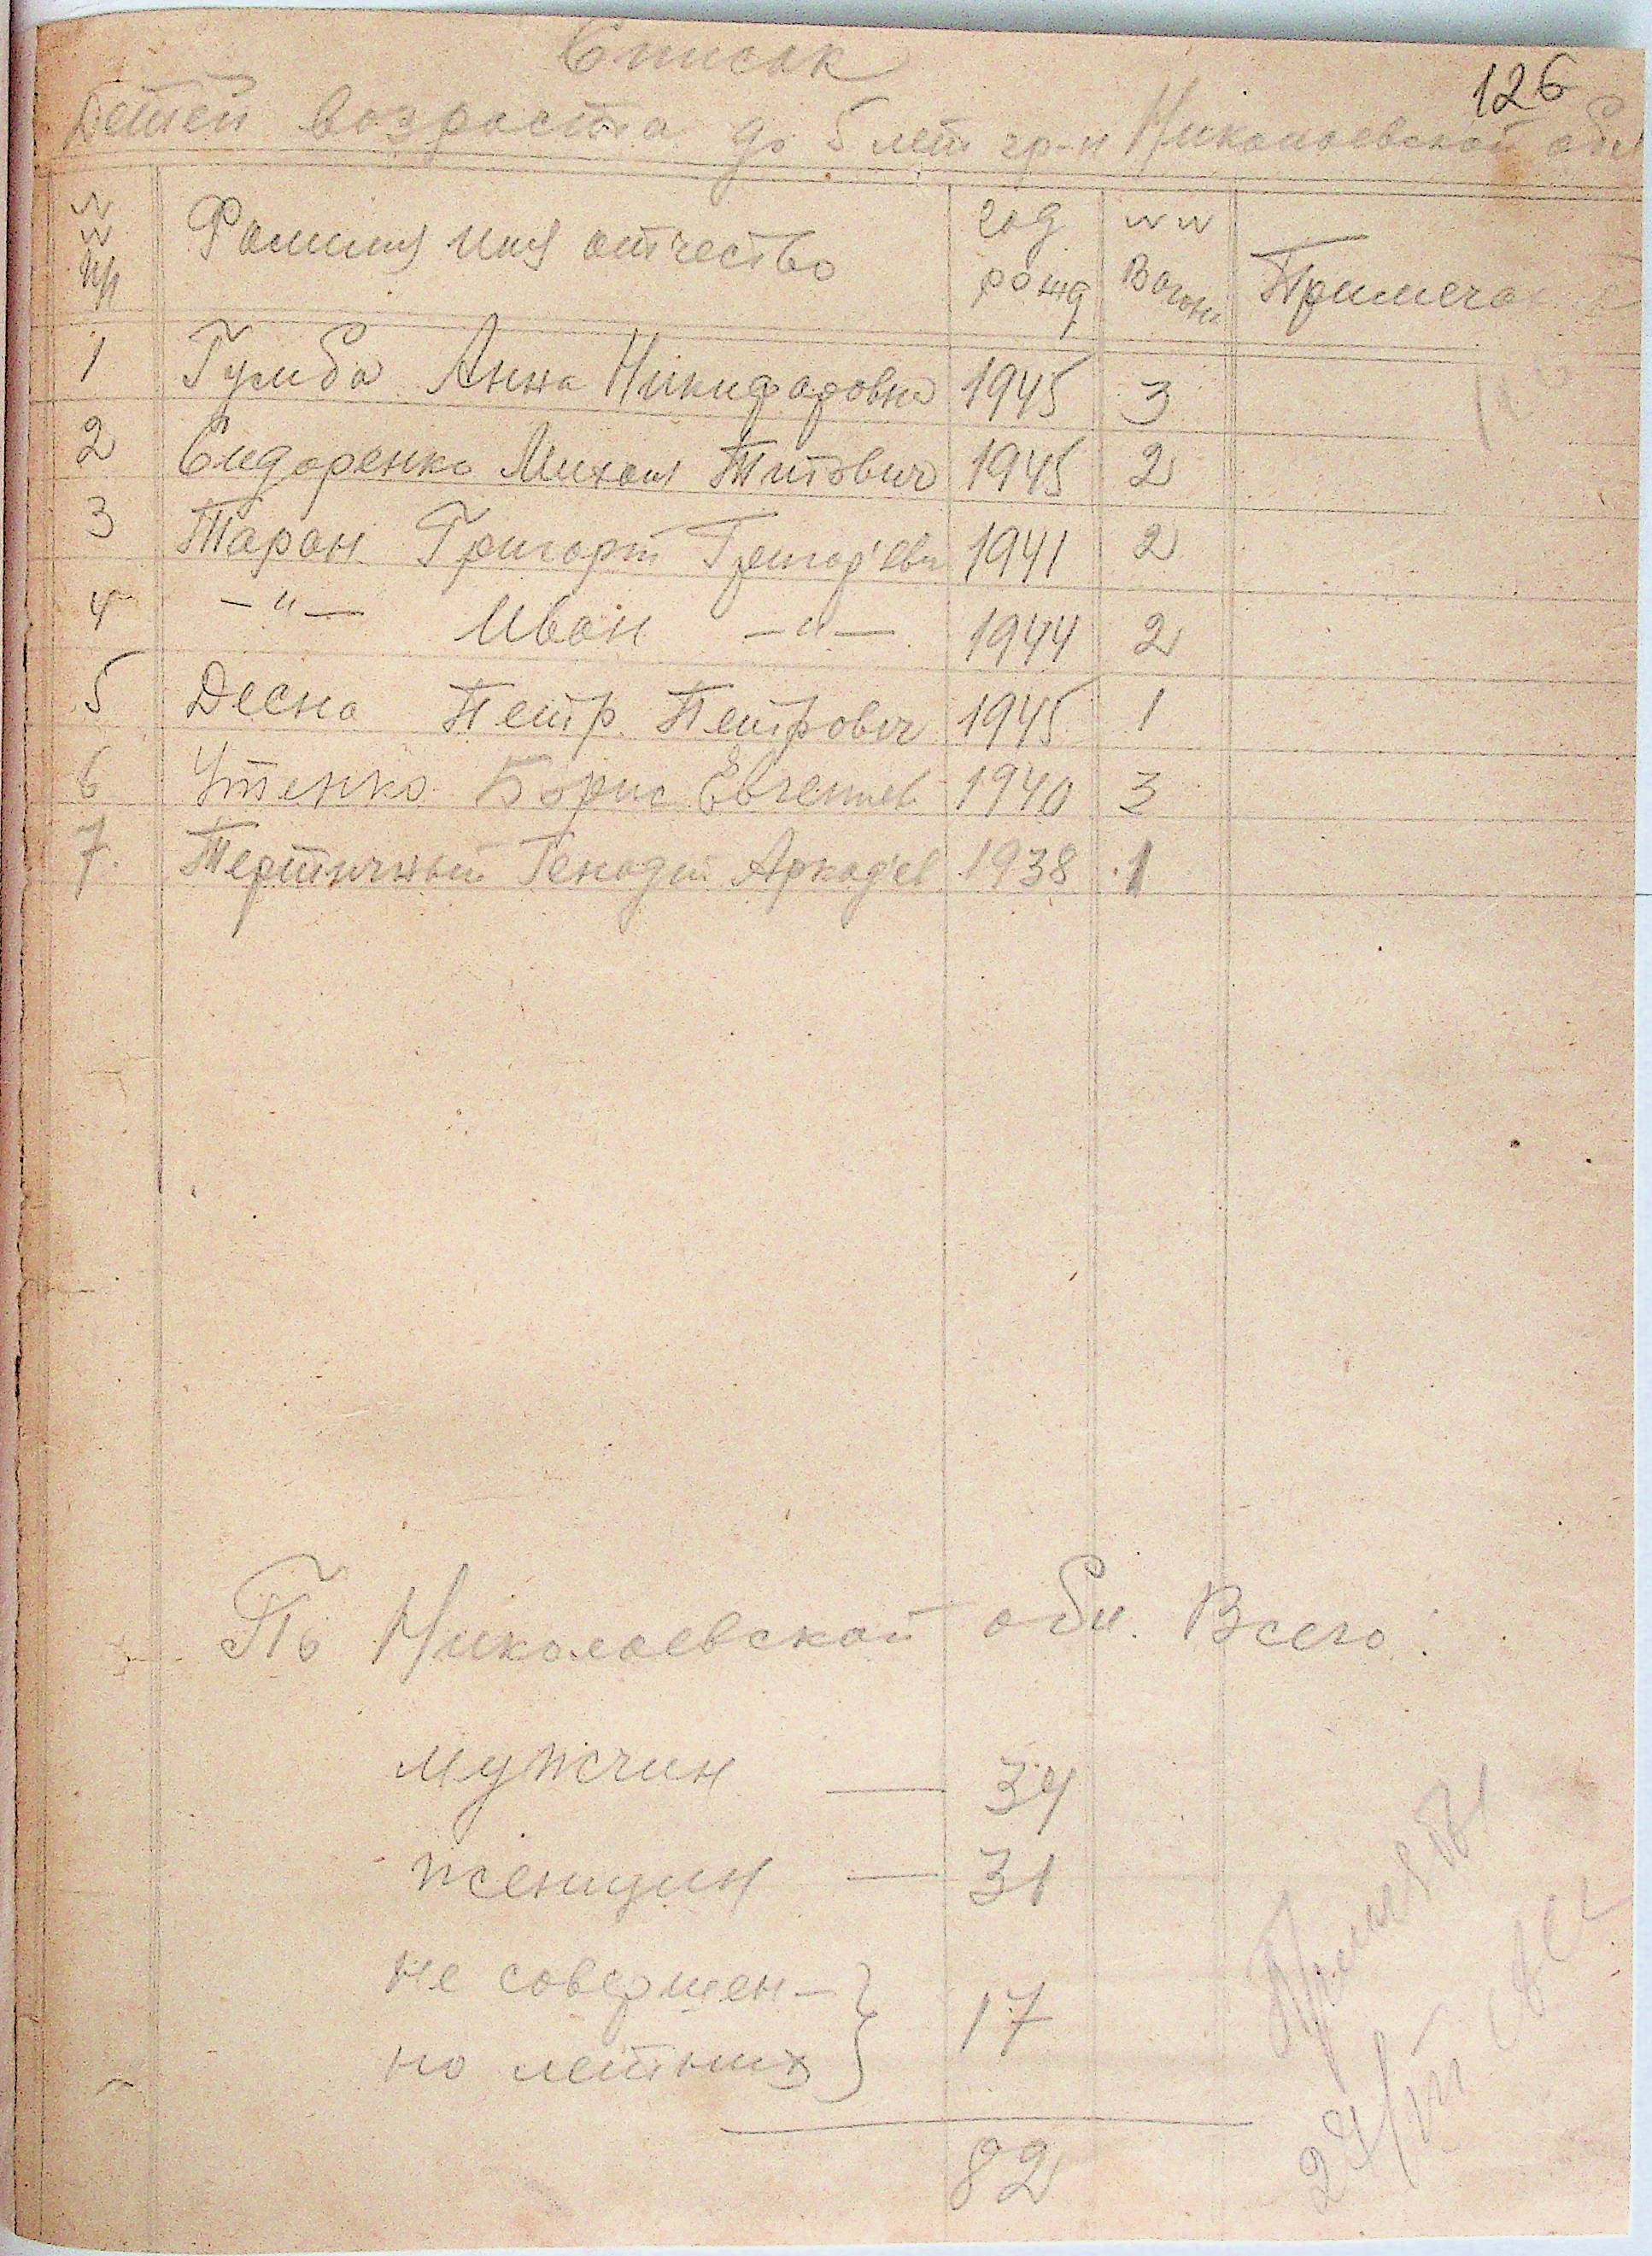 126
Список
Детей возраста до 5 лет гр-н Николаевской обл
№ № п/п Фамилия имя отчество год рожд №№ Вагона Примечан
1 Гумба Анна Никифоровна 1945 3
2 Сидоренко Михаил Титович 1945 2
3 Таран Григорий Григор'евич 1941 2
4 —"— Иван —"— 1944 2
5 Десна Петр Петрович 1945 1
6 Утенко Борис Евгениев 1940 3
7. Тертичный Генадий Аркад'ев 1938 1
По Николаевской обл. Всего:
мужчин — 34
женщин — 31
не совершен-
но летних } 17
82